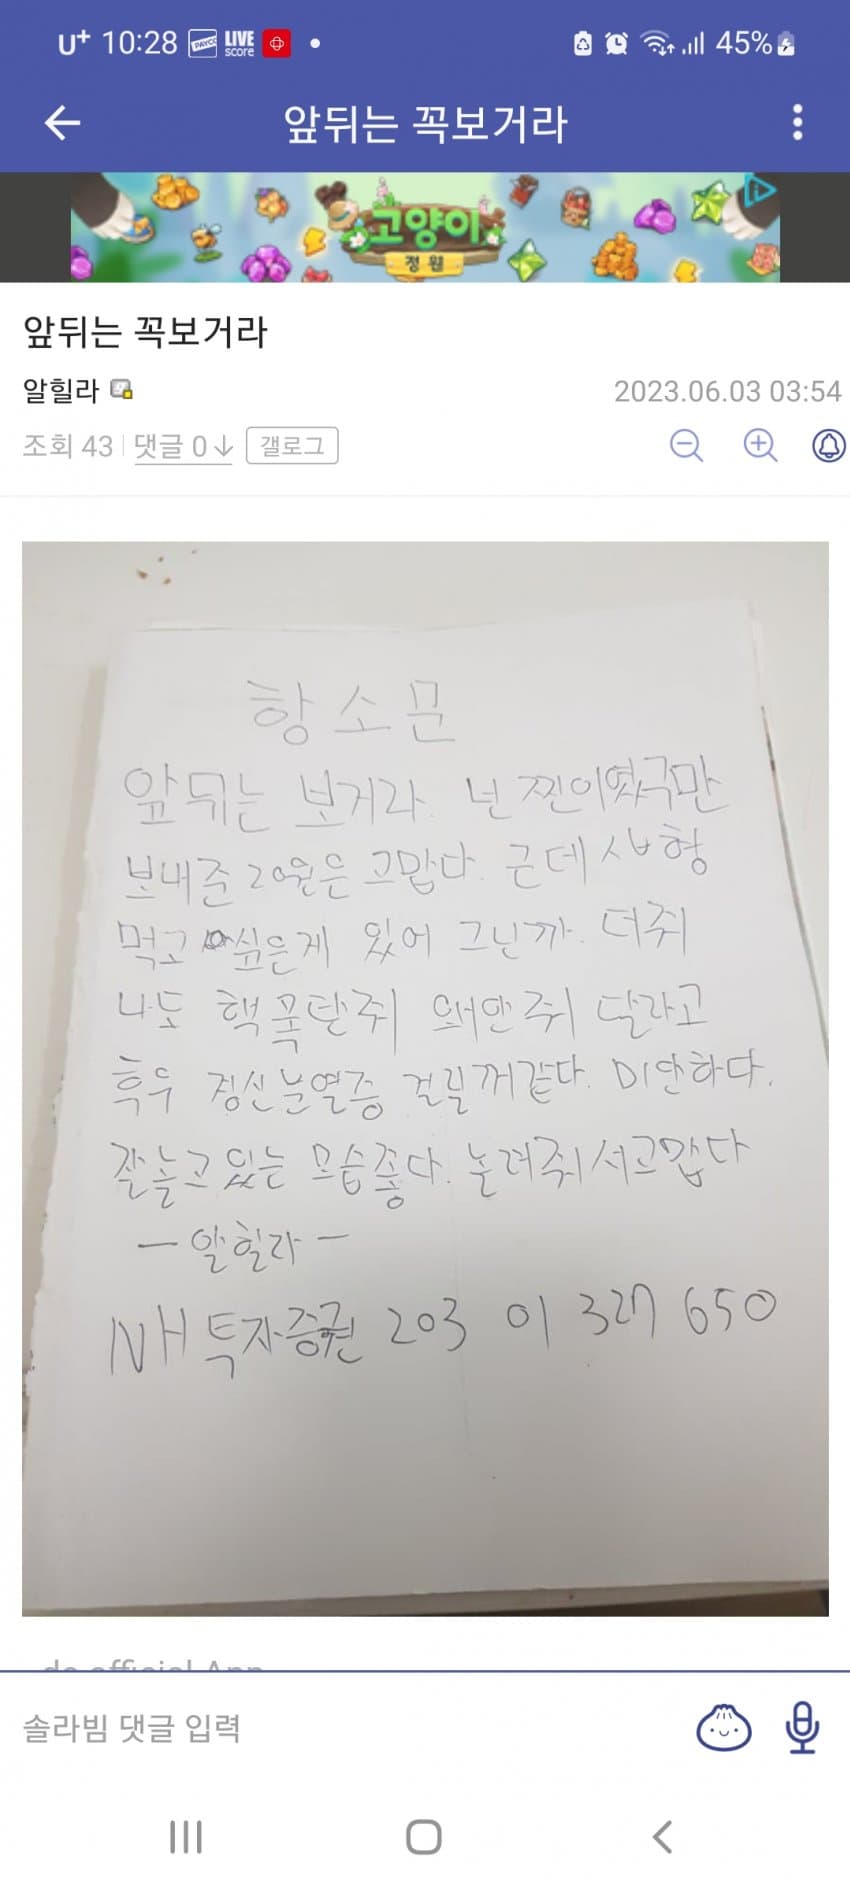 U+ 10:28 PAYCO LIVE score 45%
앞뒤는 꼭보거라
고양이
정원
앞뒤는 꼭보거라
알힐라
2023.06.03 03:54
조회 43 댓글 0 갤로그
항소문
앞뒤는 보거라. 넌 찐이였구만
보내준 20원은 고맙다. 근데 사형
먹고 싶은게 있어 그닌까. 더줘
나도 핵폭탄줘 왜안줘 달라고
흑우 정신분열증 걸릴꺼같다. 미안하다.
잘놀고 있는 모습좋다. 놀려줘서고맙다
- 알힐라 -
NH투자증권 203 01 327 650
dc official App
솔라빔 댓글 입력